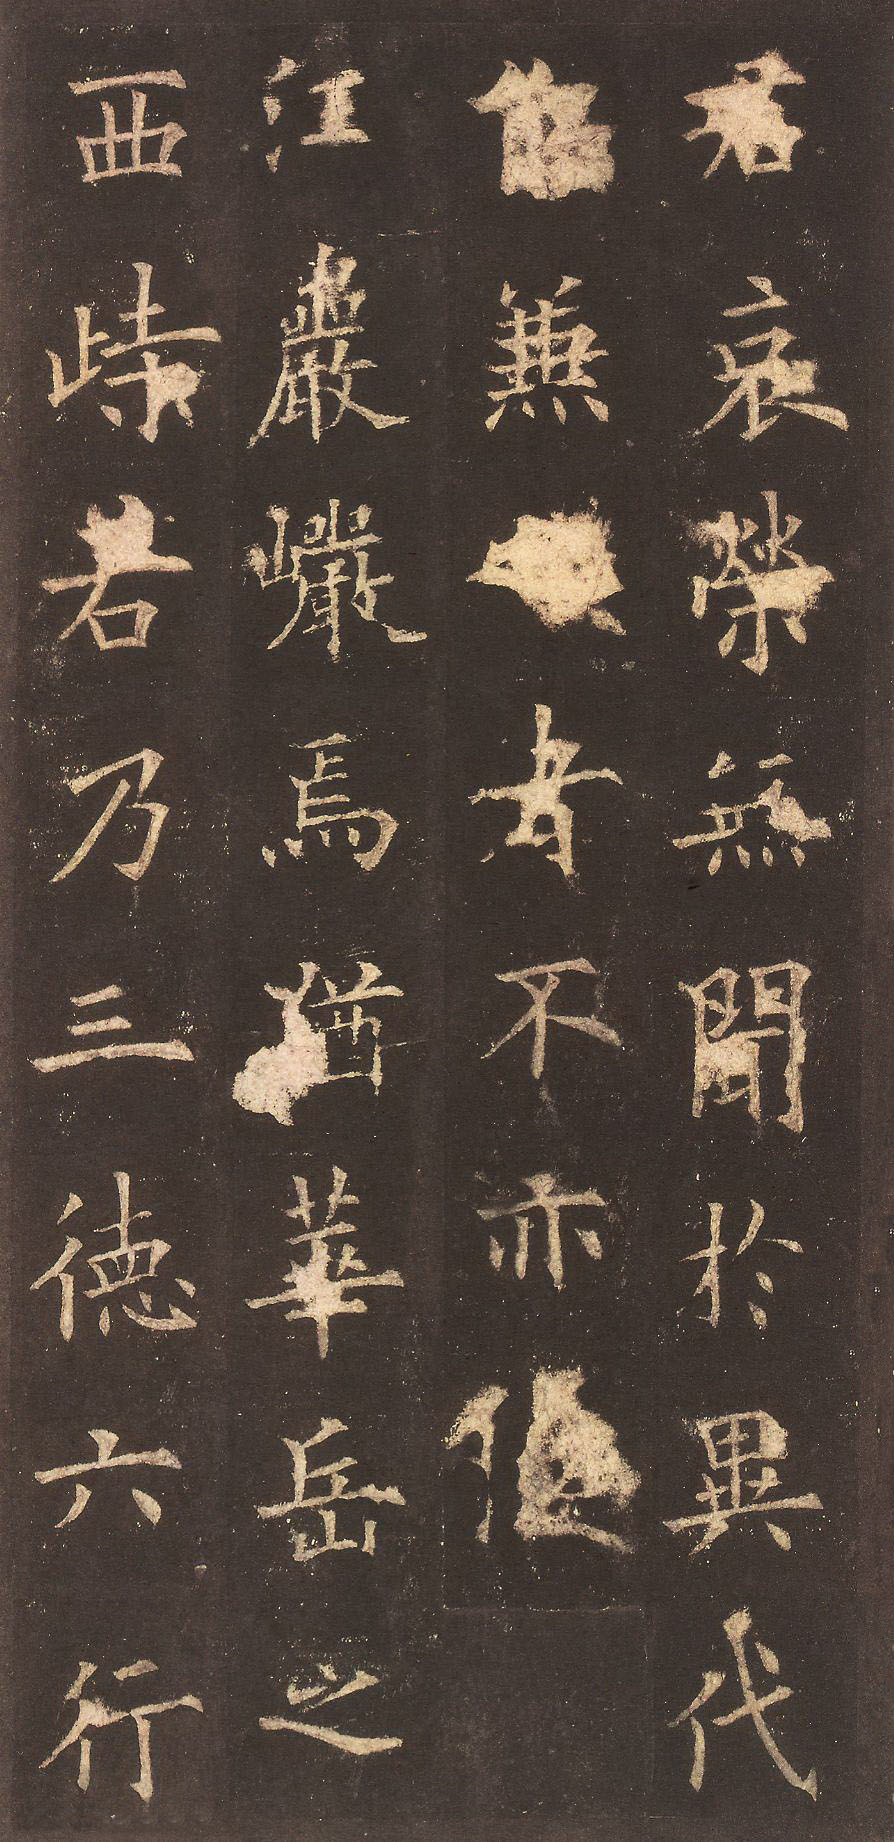 哀榮無聞於異代
兼者不亦
巖巗焉猶華岳之
西峙若乃三德六行